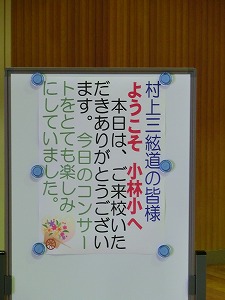 村上三絃道の皆様
ようこそ 小林小へ
本日は、ご来校いた
だきありがとうござい
ます。今日のコンサー
トをとても楽しみ
にしていました。